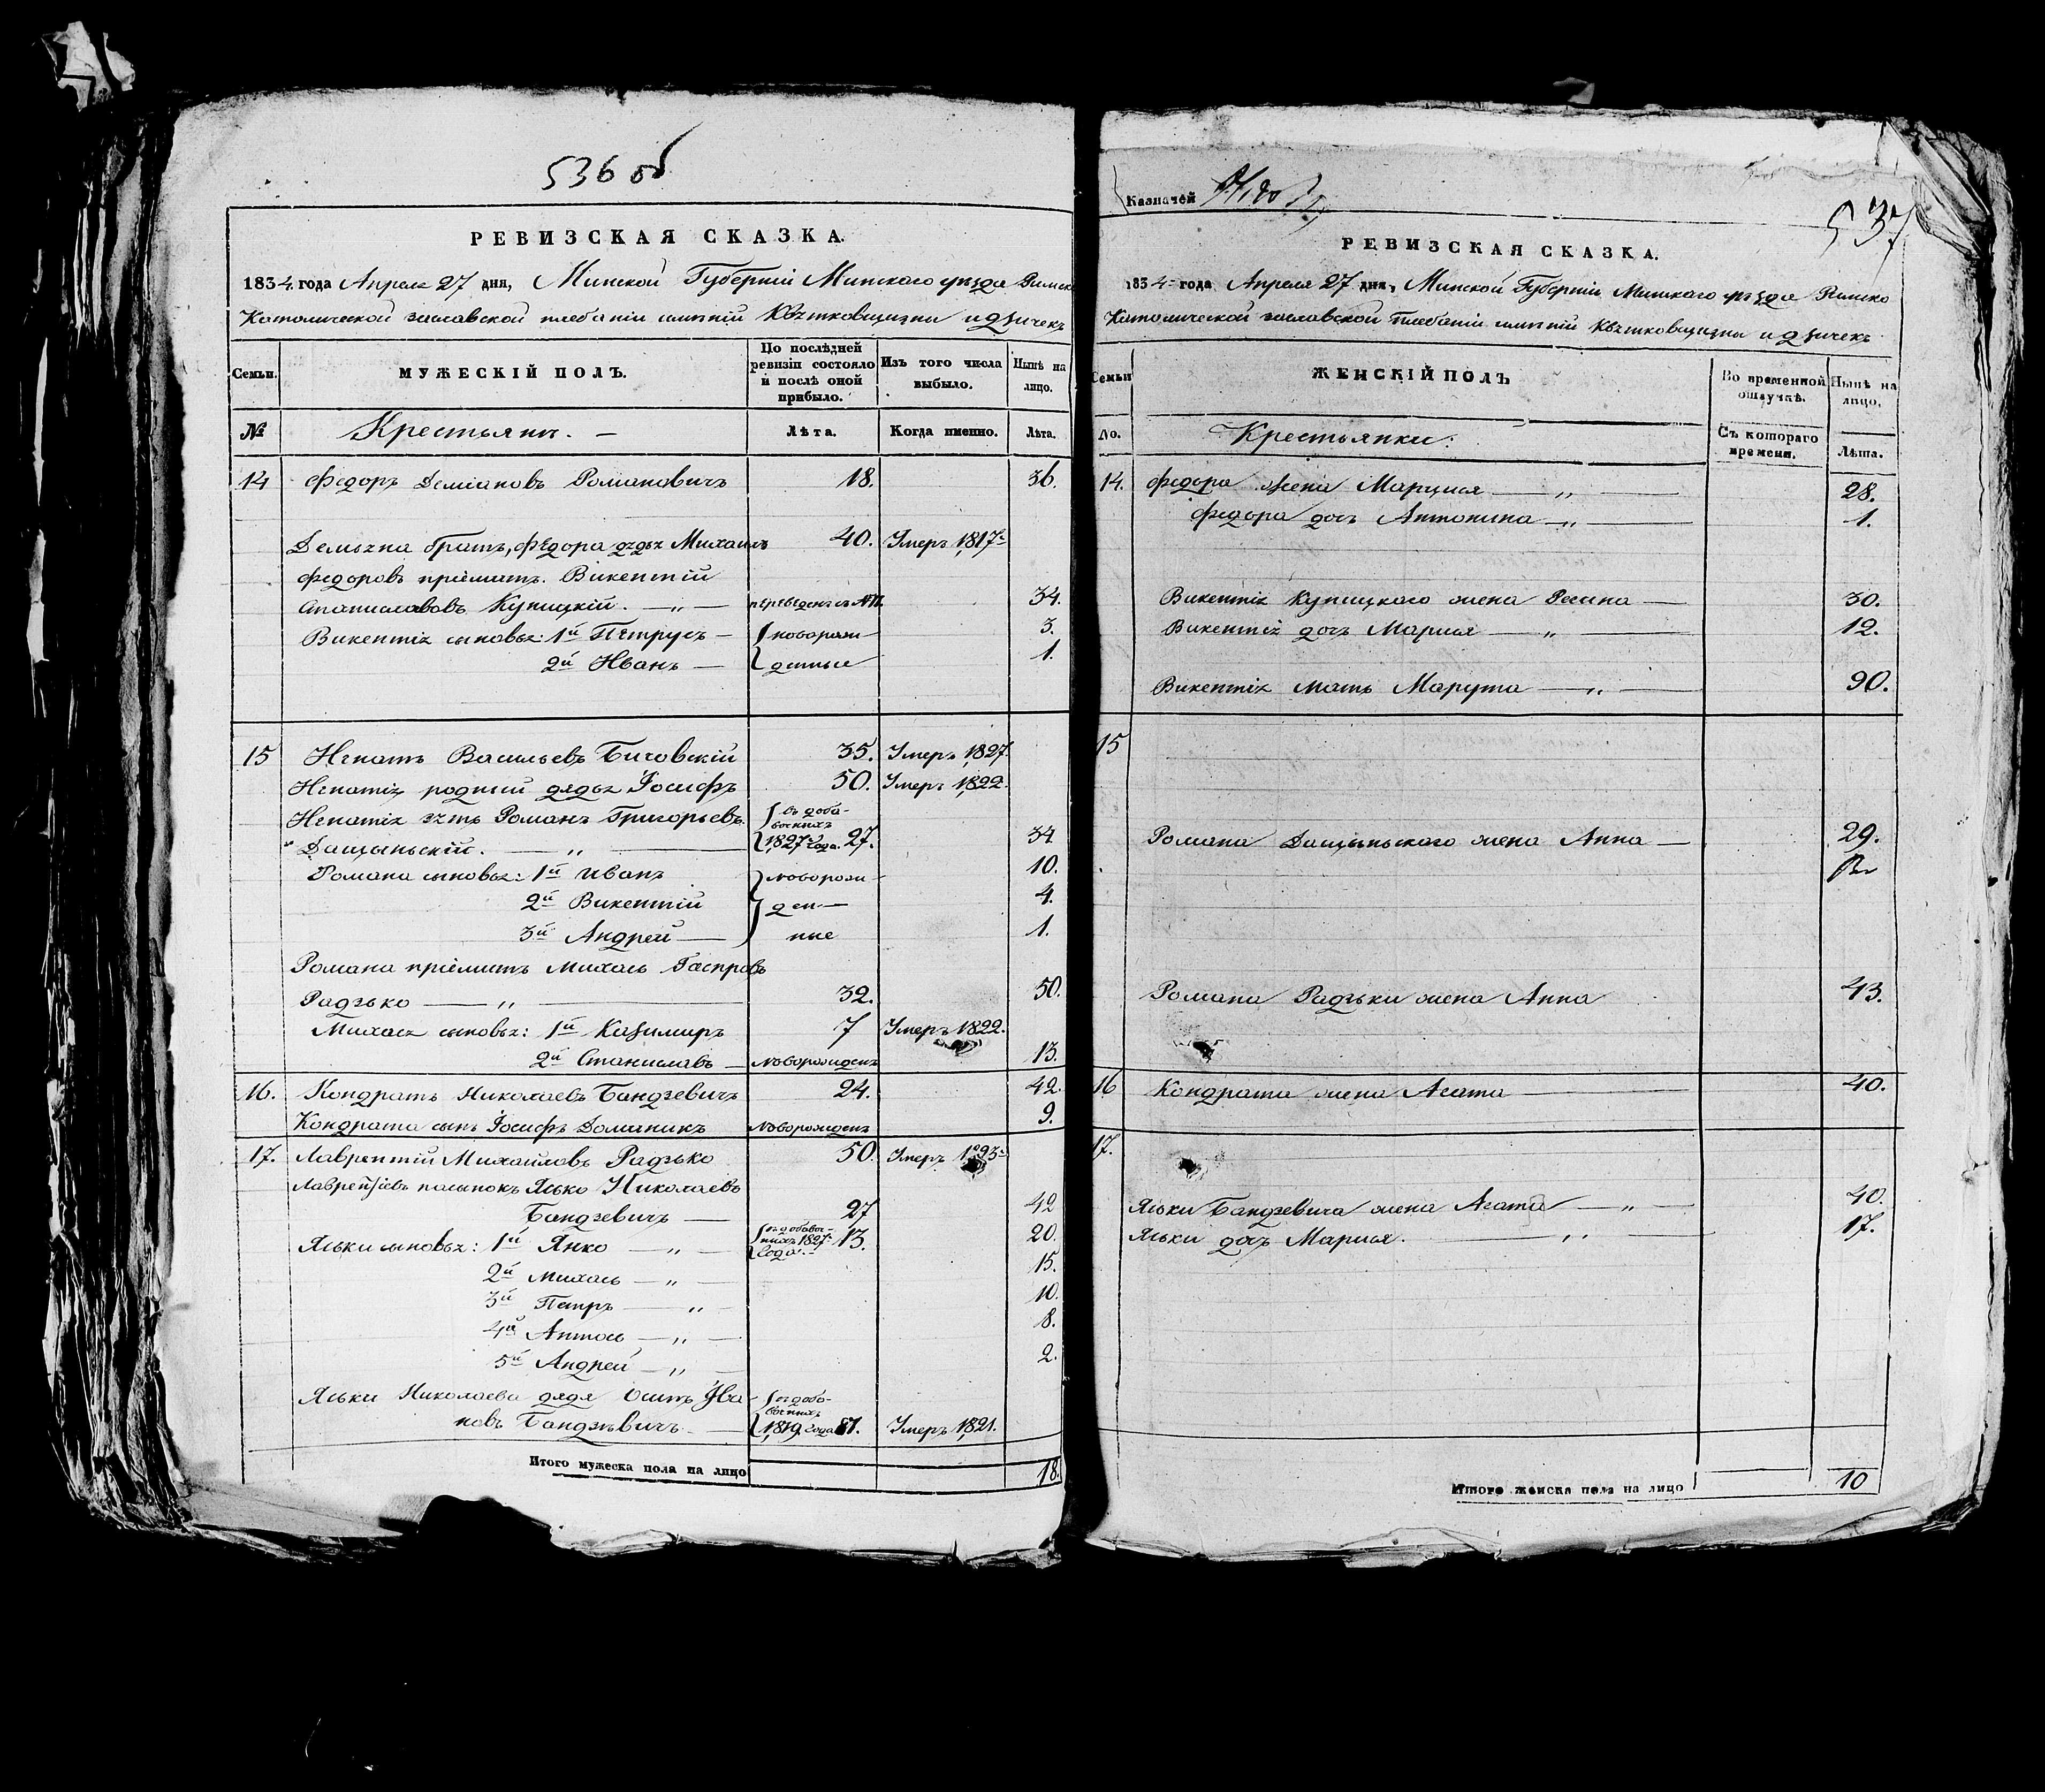 536 об
РЕВИЗСКАЯ СКАЗКА.
1834. года Апреля 27 дня, Минской Губернiи Минскаго уѣзда Римско
Католической заславской плебанiи имѣнiй Квѣтковщизны и дзичекъ
Семьи.
МУЖЕСКІЙ ПОЛЪ.
По послѣдней ревизіи состояло и послѣ оной прибыло.
Изъ того числа выбыло.
Нынѣ на лицо.
№
Крестьяне. —
Лѣта.
Когда именно.
Лѣта.
14 Федоръ Деміановъ Романовичъ 18. 36.
Демьяна братъ, Федора дядя Михаилъ 40. Умеръ 1817
Федоровъ пріемитъ. Викентій
Станиславовъ Купицкій. — „ — переведенъ съ N 11. 34.
Викентія сыновья: 1й Петрусь — новорож- 3.
2й Иванъ — денные 1.
15 Игнатъ Васильевъ Бичовскій 35. Умеръ 1827.
Игнатія родный дядя Іосифъ 50. Умеръ 1822.
Игнатія зять Романъ Григорьевъ въ доба-
вочныхъ
Дащыньскій. — „ — 1827 года. 27. 34
Романа сыновья: 1й Иванъ новорож- 10.
2й Викентій ден- 4.
3й Андрей — ные 1.
Романа пріемитъ Михась Гаспровъ
Радзько — „ — 32. 50.
Михася сыновья: 1й Казимиръ 7 Умеръ 1822.
2й Станиславъ — новорожденъ 13.
16. Кондратъ Николаевъ Бандзевичъ 24. 42.
Кондрата сынъ Іосифъ Доминикъ новорожденъ 9.
17. Лаврентій Михайловъ Радзько 50. Умеръ
Лаврентіевъ пасынокъ Ясько Николаевъ
Бандзевичъ — 27 42
Яськи сыновья: 1й Янко — „ — въ добавоч-
ныхъ 1827 года 13. 20.
2й Михась — „ — 15.
3й Петръ — „ — 10.
4й Антось — „ — 8.
5й Андрей — „ — 2.
Яськи Николаева дядя Осипъ Ива- въ доба-
вочныхъ
новъ Бандзевичъ — 1819 года Умеръ 1821.
Итого мужеска пола на лицо 18.
Казначей
537
РЕВИЗСКАЯ СКАЗКА.
1834 года Апреля 27 дня, Минской Губерніи Минскаго уѣзда Римско
Католической заславской плебаніи имѣній Квѣтковщизны и дзичекъ
Семьи
ЖЕНСКІЙ ПОЛЪ
Во временной отлучкѣ.
Нынѣ на лицо.
No.
Крестьянки:
Съ котораго времени.
Лѣта.
14. Федора жена Марцися — „ — 28.
Федора дочь Антонина — „ — 1.
Викентія Купицкаго жена Регина — 30.
Викентія дочь Марися — „ — 12.
Викентія мать Марута — „ — 90.
15
Романа Дащыньскаго жена Анна — 29.
Романа Радзьки жена Анна 43.
16 Кондрата жена Агата — 40.
17.
Яськи Бандзевича жена Агата — „ — 40.
Яськи дочь Марися. — „ — 17.
Итого женска пола на лицо 10